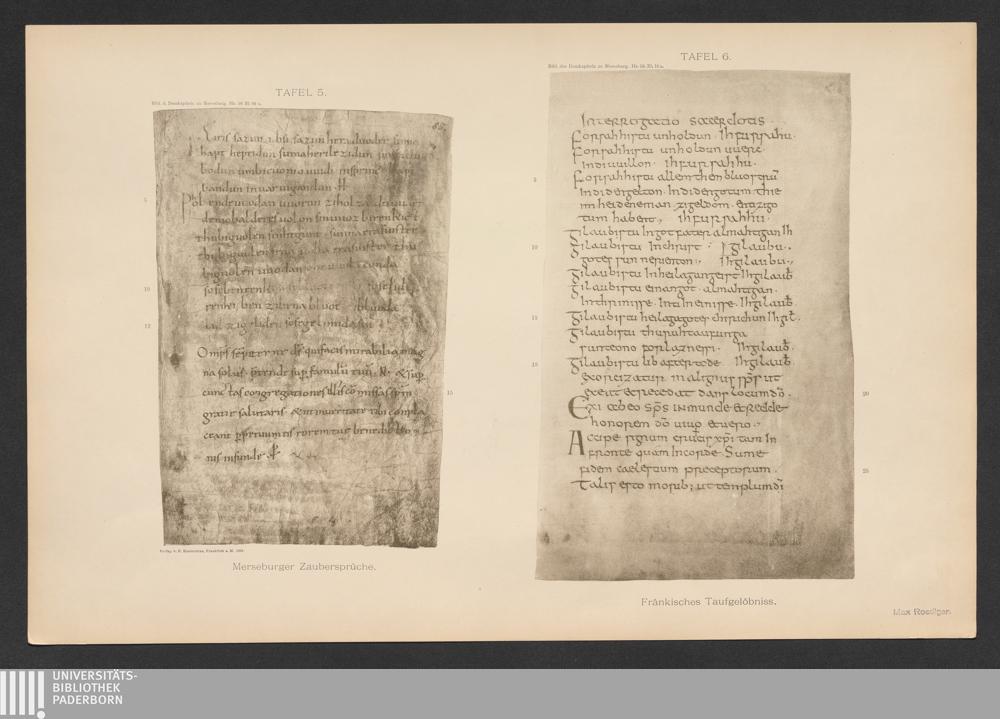 TAFEL 5.
Bibl. d. Domkapitels zu Merseburg. Hs. 58 Bl. 84 a.
85.
Eiris sazun idisi sazun hera duoder suma
hapt heptidun suma heri lezidun
bodun umbi cuonio uuidi insprinc
bandun inuar uigandun · H
Phol endeuuodan uuorun ziholza du uuart
demobalderes uolon sinuuoz birenkict
thubiguolen sinhtgunt · sunna erasuister
thubiguolen friia uolla erasuister thu
biguolen uuodan
sosebenrenki sose
renki ben zibena bluot zibluoda
lid zigeliden sosegelimida sin
5
10
12
Omps sempiterne ds qui facis mirabilia mag
na solus pretende sup famulu tuu N & sup
cunctas congregationes illis commissas spm
gratie salutaris & ut inueritate tibi compla
ceant perpetuum eis rorem tue benedictio
nis infunde
15
Merseburger Zaubersprüche.
TAFEL 6.
Bibl. des Domkapitels zu Merseburg. Hs. 58 Bl. 16 a.
Interrogatio sacerdotis.
Forsahhistu unholdun · Ih fursahu ·
Forsahhistu unholdun uuerc
indi uuillon · ihfursahhu ·
Forsahhistu allem them bluostrū
indi den gelton · Indi den gotum thie
im heidene man zi geldom · enti zi go
tum habent · ihfursahhu ·
Gilaubistu In got fater almahtigan Ih
Gilaubistu In christ · Ih gilaubu ·
gotes sun nerienton · Ih gilaubu ·
Gilaubistu In heilagan geist Ih gilaub
Gilaubistu einan got · almahtigan ·
In thrinisse · Inti In einisse · Ih gilaub
Gilaubistu heilaga gotes chirichun Ih gil ·
Gilaubistu thuruh taufunga
sunteono forlaznessi · Ih gilaub ·
Gilaubistu lib after tode · Ih gilaub
Exorcizatur malignus sps ut
exeat et recedat dans locum dō ·
Exi ab eo sps inmunde et redde
honorem dō uiuo et uero ·
Accipe signum crucis xpi tam In
fronte quam In corde · Sume
fidem caelestium preceptorum ·
Talis esto morib; ut templum dī
5
10
15
18
20
25
Fränkisches Taufgelöbniss.
Max Roediger.
UNIVERSITÄTS-
BIBLIOTHEK
PADERBORN